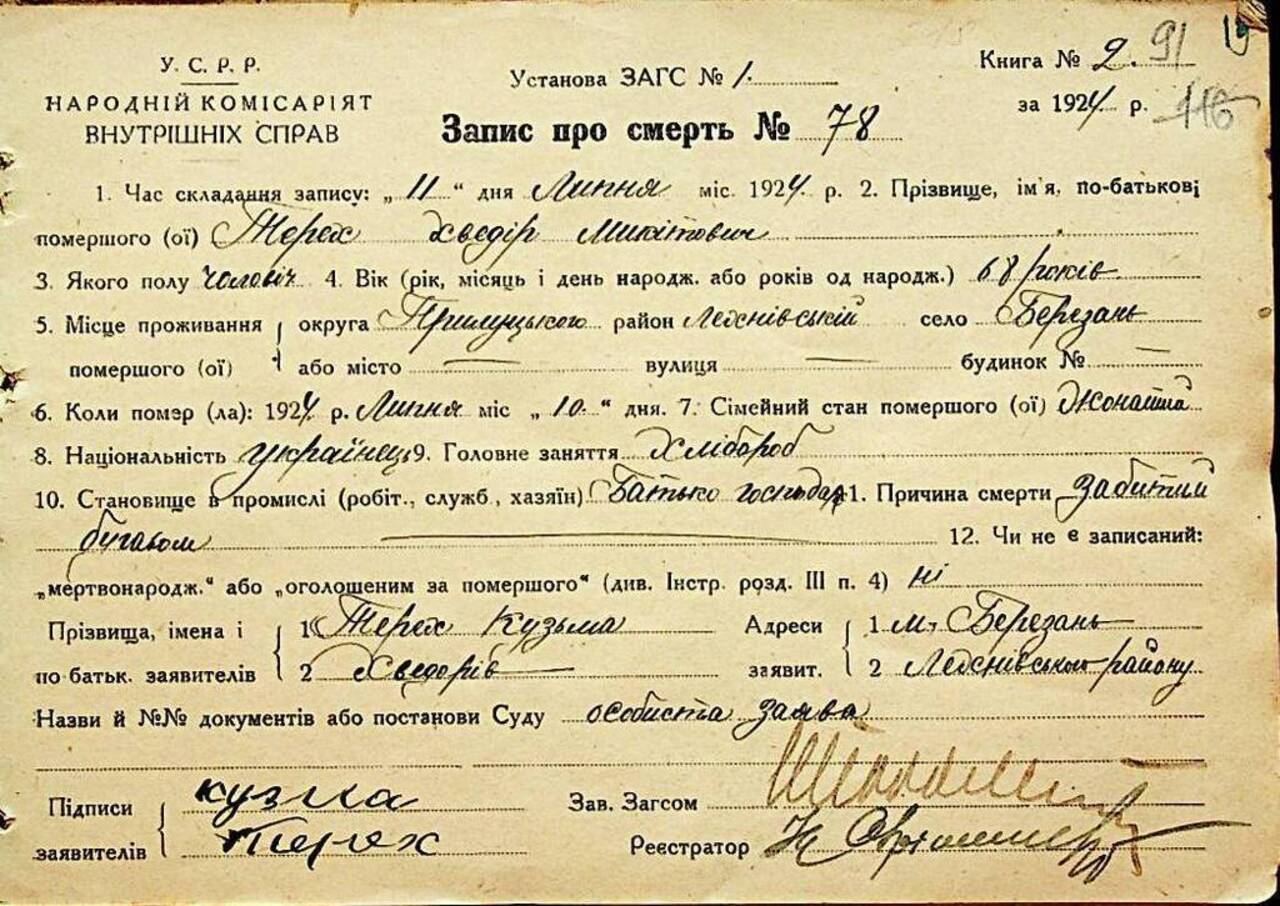 Книга № 2. 91
У. С. Р. Р.
Установа ЗАГС № 1.
НАРОДНІЙ КОМІСАРІЯТ
за 1924 р. 116
ВНУТРІШНІХ СПРАВ
Запис про смерть № 78
1. Час складання запису: „11" дня Липня міс. 1924 р. 2. Прізвище, ім'я, по-батькові
помершого (ої) Терех Хведір Микітович
3. Якого полу чоловіч 4. Вік (рік, місяць і день народж. або років од народж.) 68 років
5. Місце проживання округа Прилуцького район село Березань
помершого (ої) або місто — вулиця — будинок № —
6. Коли помер (ла): 1924 р. Липня міс „10." дня. 7. Сімейний стан помершого (ої) Жонатій
8. Національність українець 9. Головне заняття Хлібороб
10. Становище в промислі (робіт., служб., хазяїн) Батько господар 11. Причина смерти забитий
бугаьом 12. Чи не є записаний:
„мертвонародж." або „оголошеним за помершого" (див. Інстр. розд. III п. 4) ні
Прізвища, імена і 1 Терех Кузьма Адреси 1 м. Березань
по батьк. заявителів 2 Хведорів заявит. 2 району
Назви й №№ документів або постанови Суду особиста заява
Підписи кузма Зав. Загсом
заявителів Терех Реєстратор